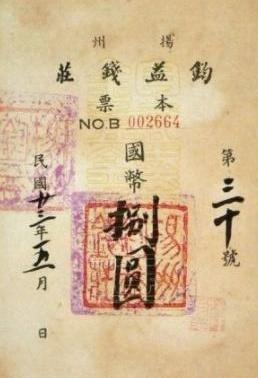 揚州
鈞益錢莊
本票
NO.B 002664
第三十號
國幣
捌圓
民國廿三年五月 日